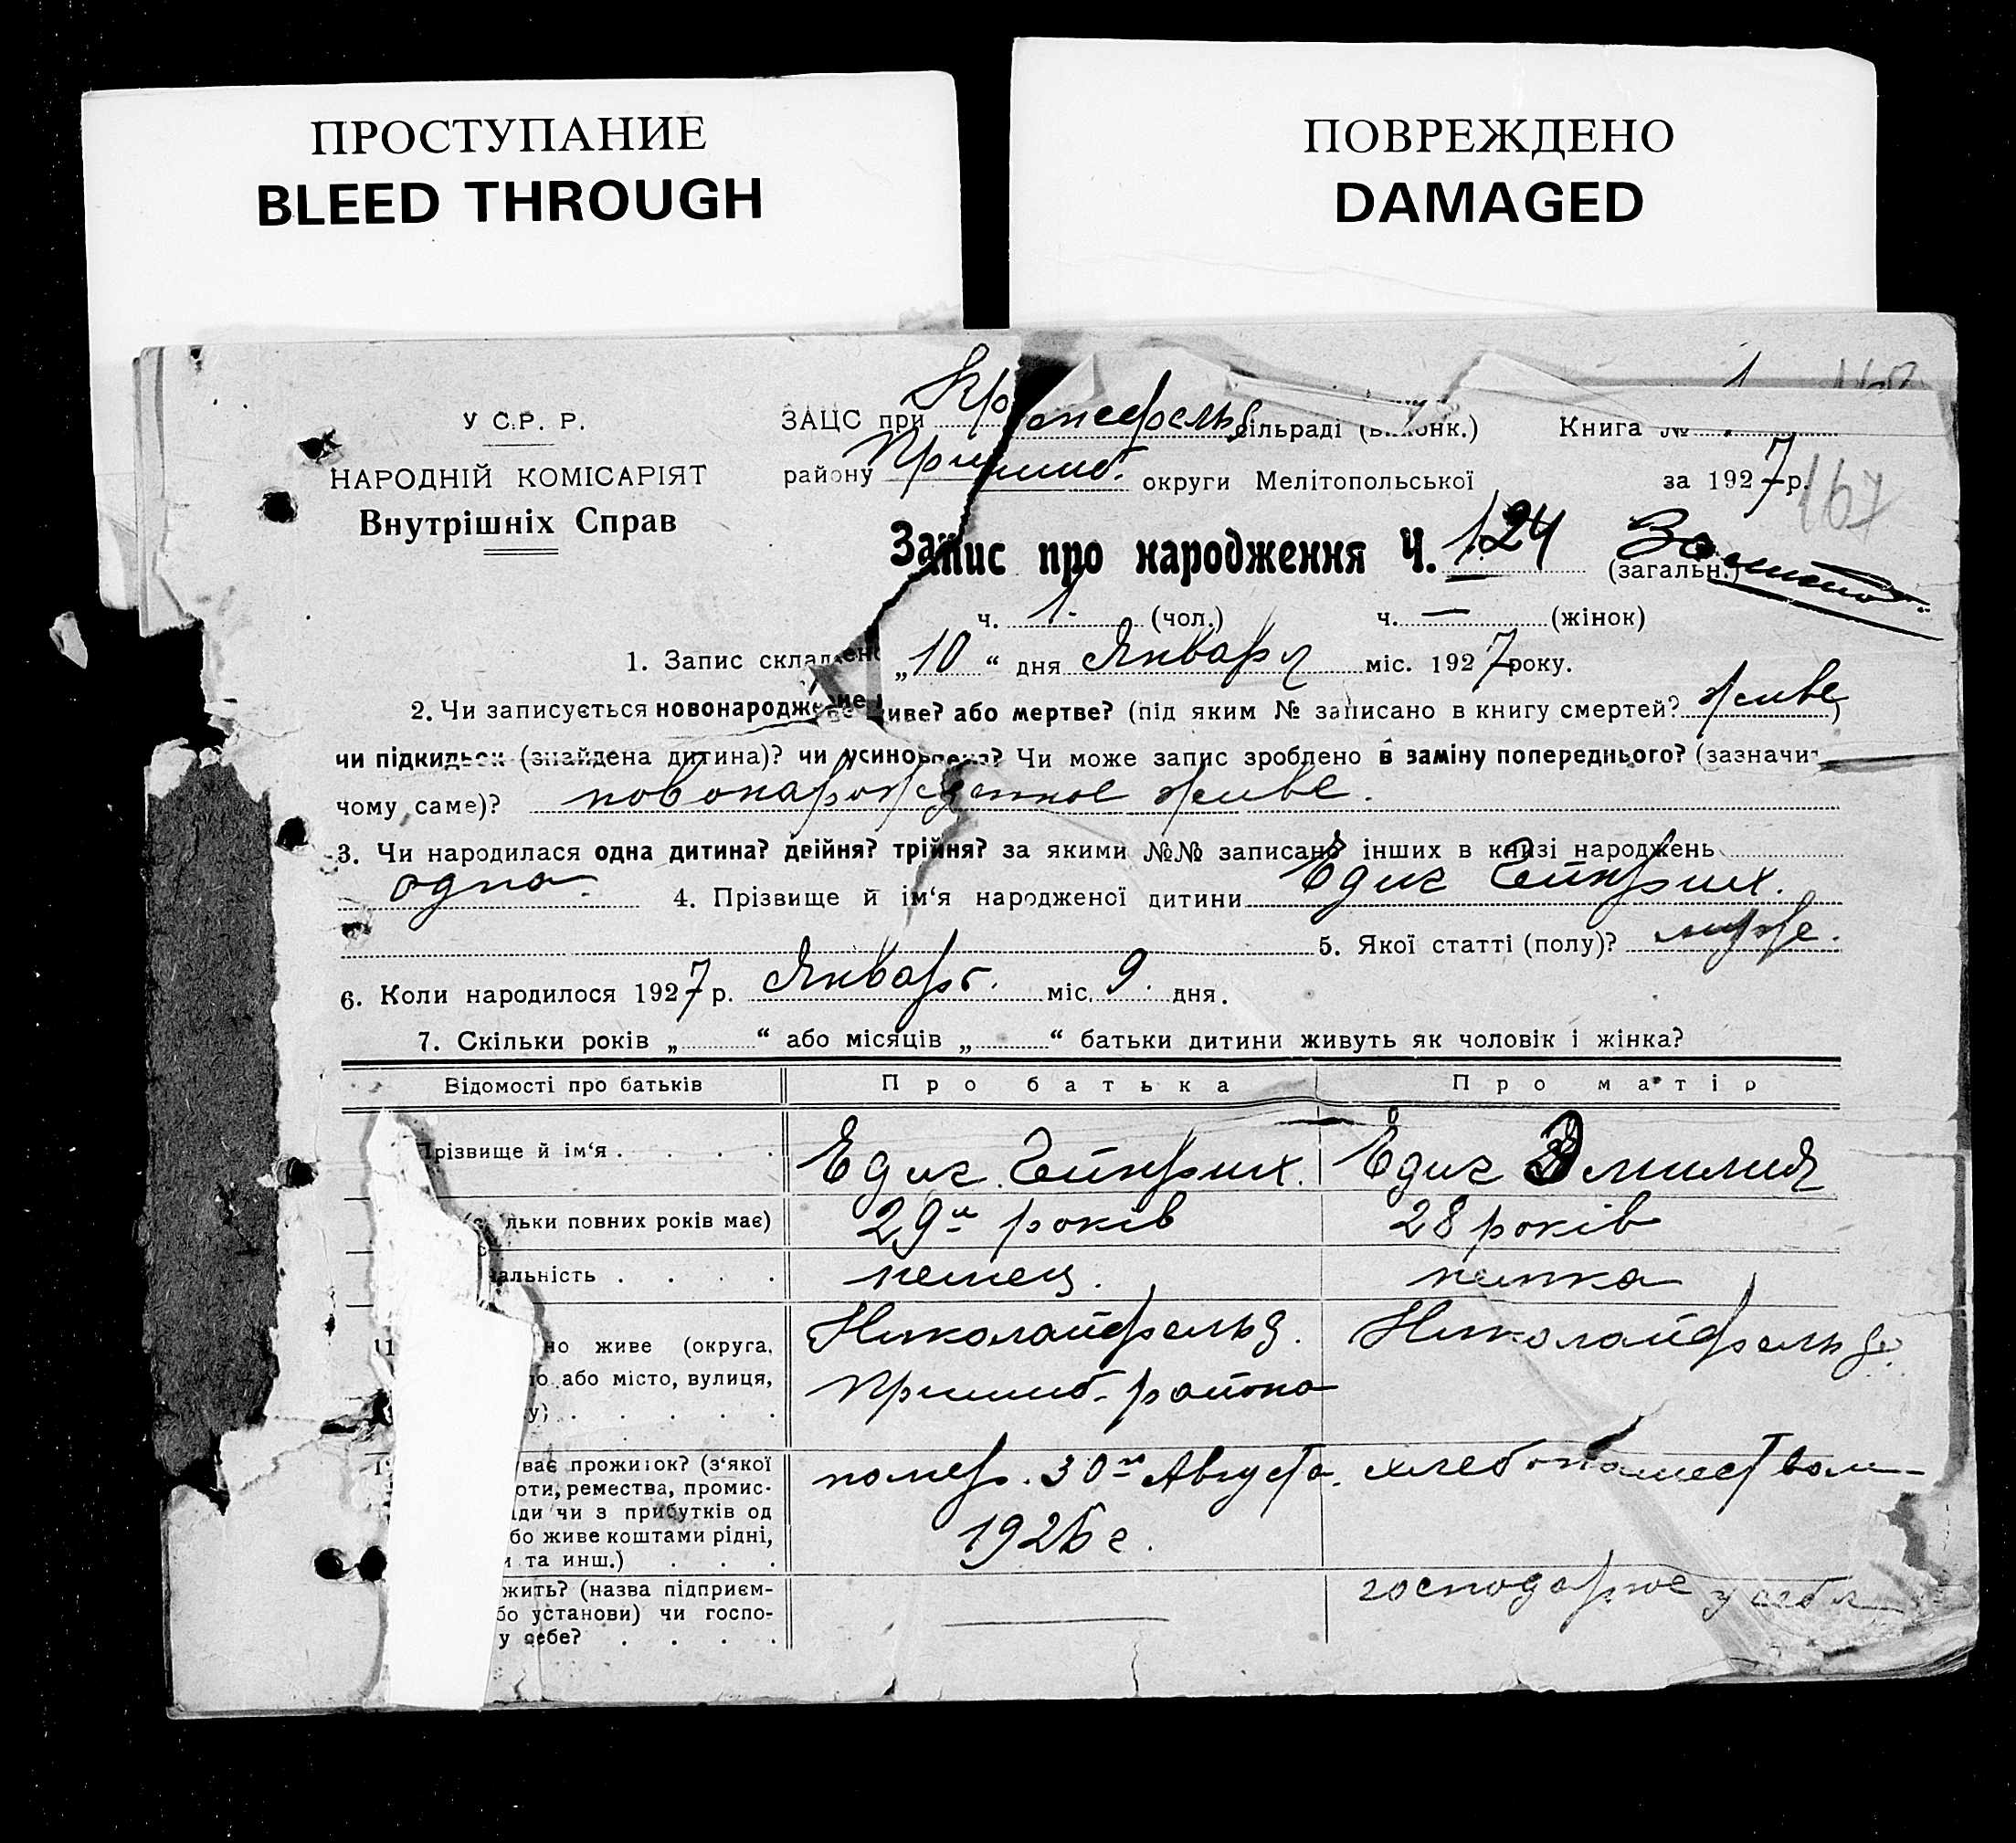 ПРОСТУПАНИЕ
BLEED THROUGH
ПОВРЕЖДЕНО
DAMAGED
У С.Р. Р.
НАРОДНІЙ КОМІСАРІЯТ
Внутрішніх Справ
ЗАЦС при сільраді Книга №
району Пришиб. округи Мелітопольської за 1927 р. 167
Запис про народження Ч. 124 (загальн.)
ч. 1. (чол.) ч. — (жінок)
1. Запис складено „10“ дня Января міс. 1927 року.
2. Чи записується новонароджене живе? або мертве? (під яким № записано в книгу смертей? живе)
чи підкидьок (знайдена дитина)? чи усиновлена? Чи може запис зроблено в заміну попереднього? (зазначит
чому саме)? новонарожденное живе.
3. Чи народилася одна дитина? двійня? трійня? за якими №№ записано інших в книзі народжень
одна. 4. Прізвище й ім‘я народженої дитини Едиг Гейнрих.
5. Якої статті (полу)? муже.
6. Коли народилося 1927 р. Январь. міс. 9. дня.
7. Скільки років „ “ або місяців „ “ батьки дитини живуть як чоловік і жінка?
Відомості про батьків Про батька Про матір
Прізвище й ім‘я . . . . Едиг Гейнрих. Едиг Эмилия
льки повних років має) 29 років 28 років
альність . . . . немец. немка
но живе (округа, Николайфельд. Николайфельд.
або місто, вулиця, Пришиб. района
у) . . . . .
ває прожиток? (з‘якої помер. 30го Августа хлебопашеством
оти, ремества, промис- 1926 г.
ди чи з прибутків од
бо живе коштами рідні,
и та инш.) . . .
жить? (назва підприєм- господарює у себя
бо установи) чи госпо-
у себе? . . . .